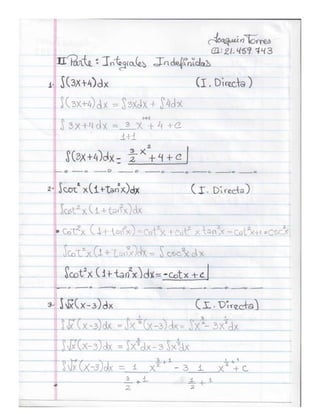 Joaquin Torres
CI: 21.459.743
II Parte: Integrales Indefinidas
1- ∫(3x+4)dx (I. Directa)
∫(3x+4)dx = ∫3xdx + ∫4dx
∫3x+4dx = 3 x^(1+1)/(1+1) + 4 + c
∫(3x+4)dx = 3/2 x² + 4 + c
2- ∫cot²x(1+tan²x)dx (I. Directa)
∫cot²x(1+tan²x)dx
cot²x(1+tan²x) = cot²x + cot²x tan²x = cot²x+1 = csc²x
∫cot²x(1+tan²x)dx = ∫csc²x dx
∫cot²x(1+tan²x)dx = -cotx + c
3- ∫√x(x-3)dx (I. Directa)
∫√x(x-3)dx = ∫x^(1/2)(x-3)dx = ∫x^(3/2) - 3x^(1/2)dx
∫√x(x-3)dx = ∫x^(3/2)dx - 3∫x^(1/2)dx
∫√x(x-3)dx = 1/(3/2+1) x^(3/2+1) - 3 1/(1/2+1) x^(1/2+1) + c